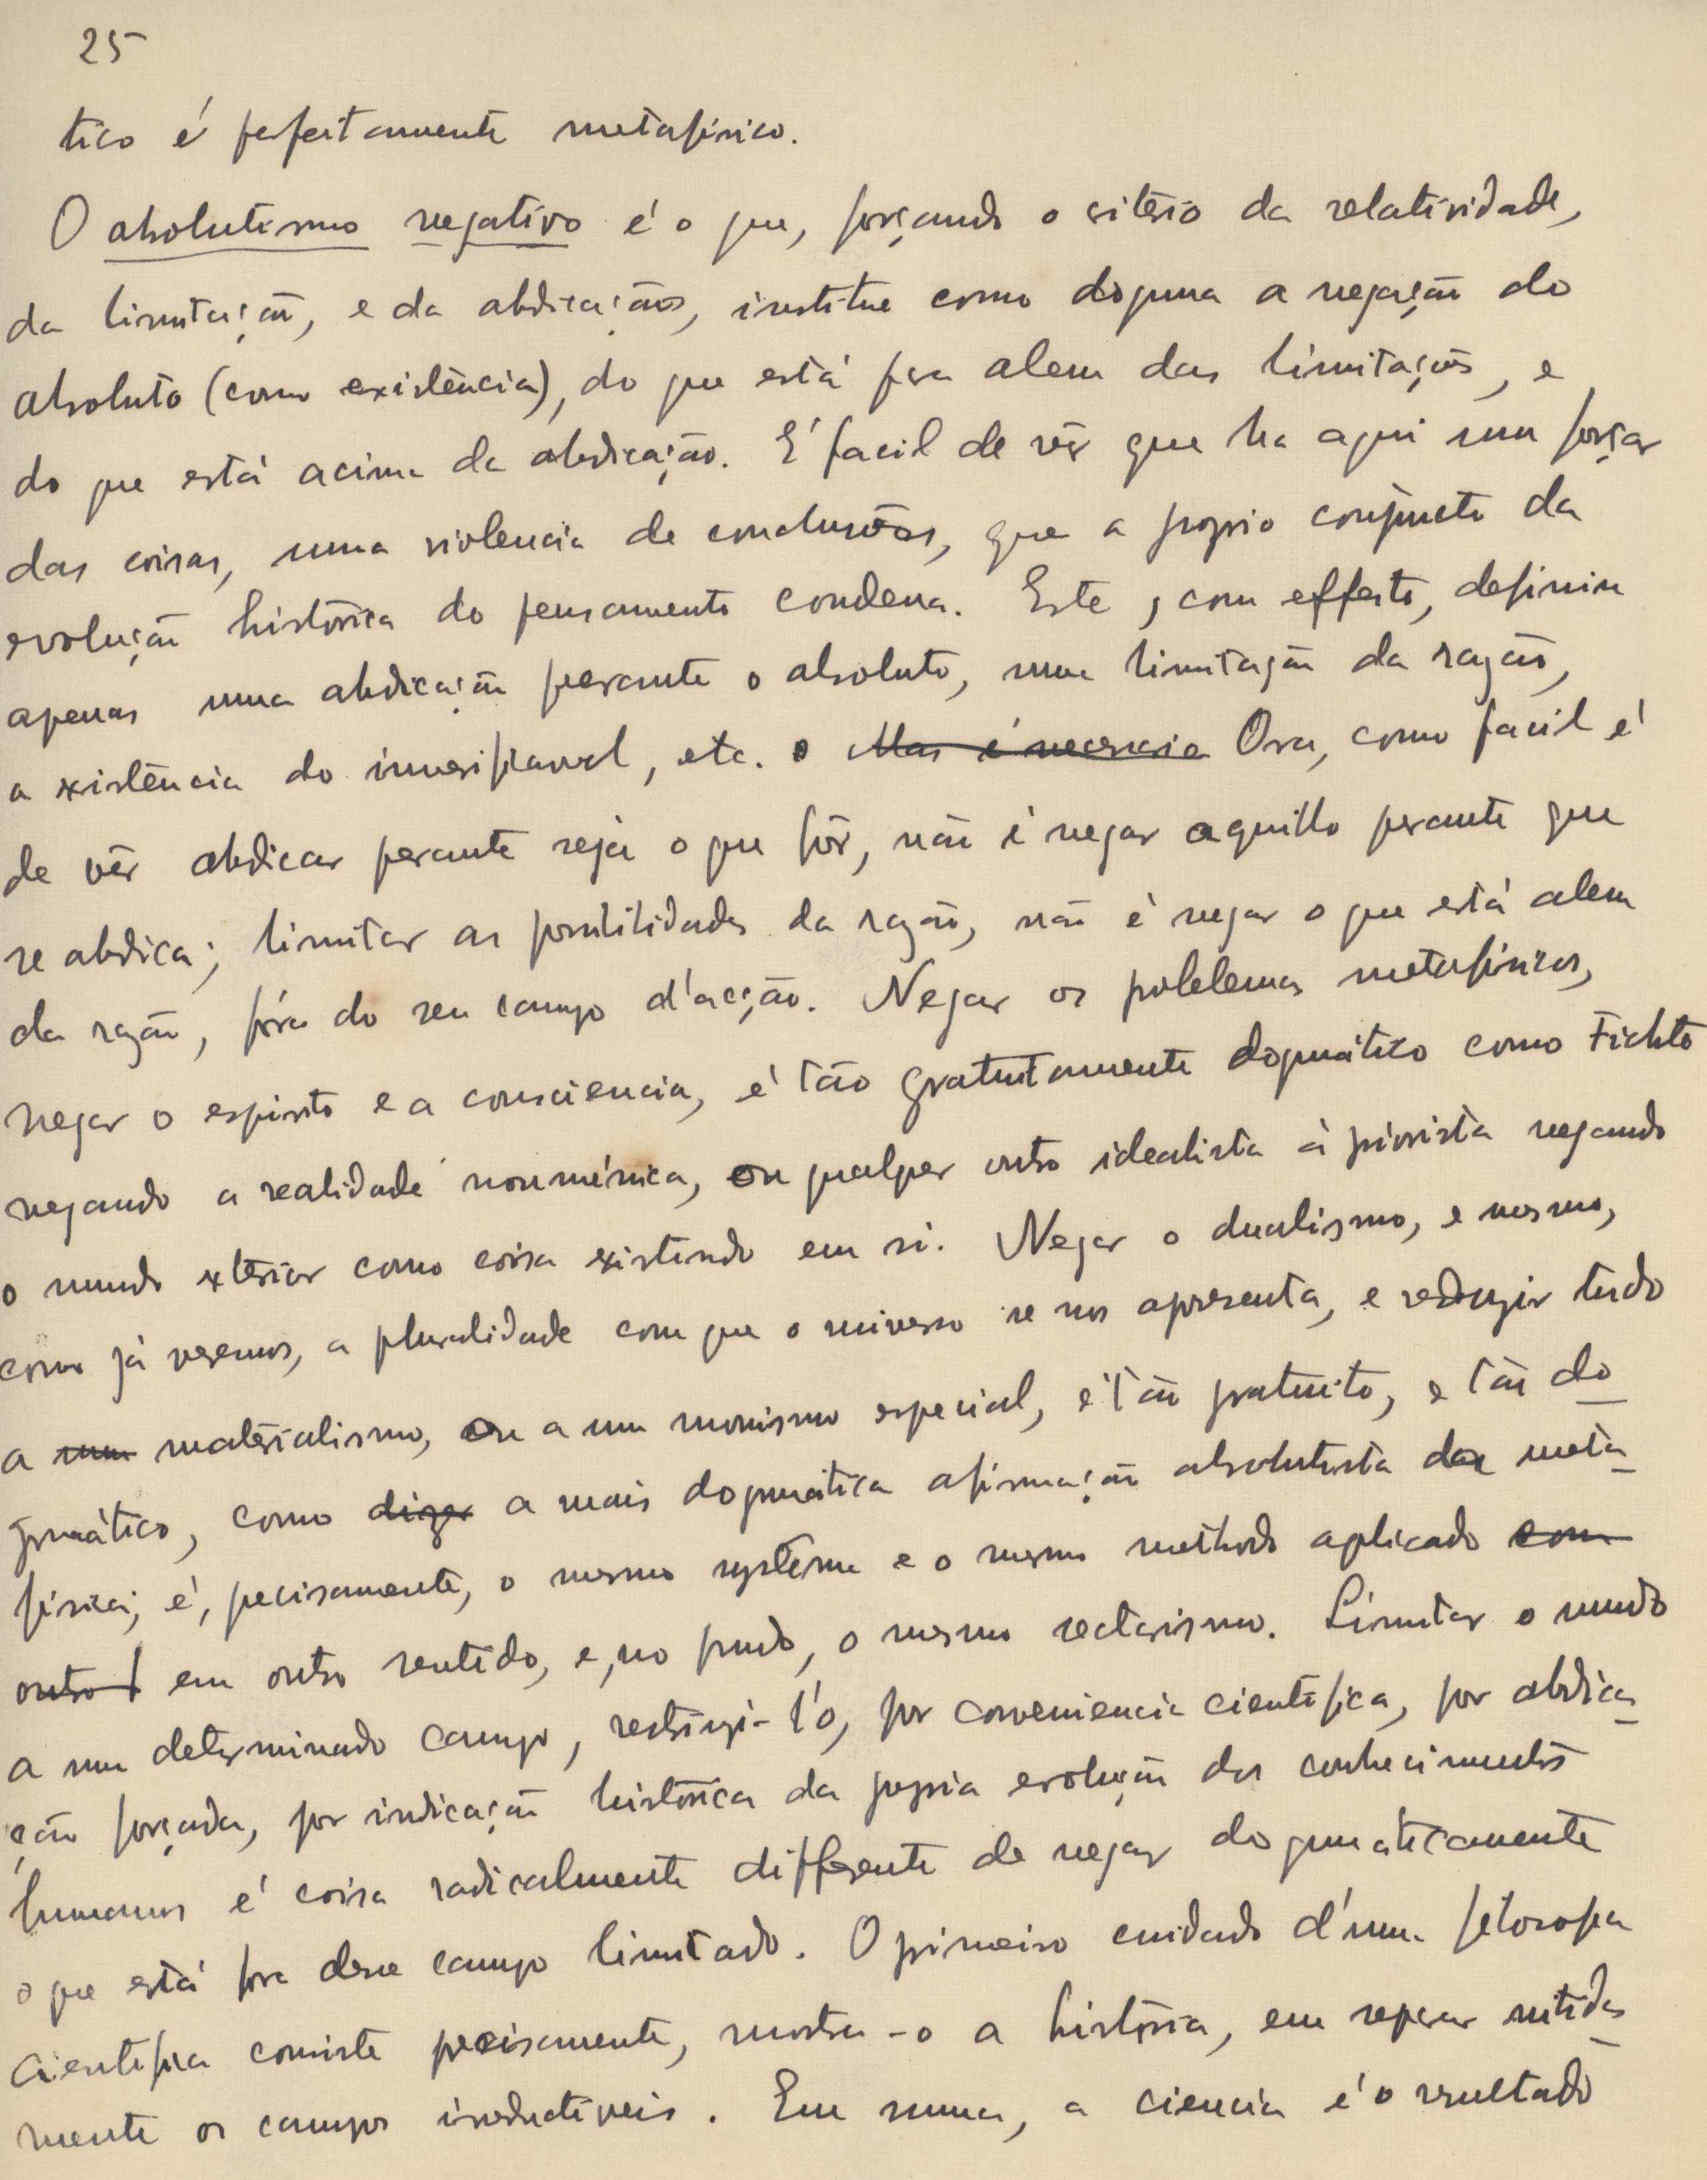 25
tico é perfeitamente metafísico.
O absolutismo negativo é o que, forçando o critério da relatividade,
da limitação, e da abdicação, institue como dogma a negação do
absoluto (como existência), do que está para alem das limitações, e
do que está acima da abdicação. É facil de vêr que ha aqui um forçar
das coisas, uma violencia de conclusões, que a proprio conjuncto da
evolução histórica do pensamento condena. Este, com effeito, definiu
apenas uma abdicação perante o absoluto, uma limitação da razão,
a existência do inverificavel, etc. Mas é necessario Ora, como facil é
de vêr abdicar perante seja o que fôr, não é negar aquillo perante que
se abdica; limitar as possibilidades da razão, não é negar o que está alem
da razão, fóra do seu campo d'acção. Negar os problemas metafísicos,
negar o espirito e a consciencia, é tão gratuitamente dogmático como Fichte
negando a realidade noumenica, ou qualquer outro idealista à priorista negando
o mundo exterior como coisa existindo em si. Negar o dualismo, e mesmo,
como já veremos, a pluralidade com que o universo se nos apresenta, e reduzir tudo
a um materialismo, ou a um monismo especial, é tão gratuito, e tão do-
gmático, como dizer a mais dogmática afirmação absolutista da meta-
física; é, precisamente, o mesmo systema e o mesmo methodo aplicado com
outro em outro sentido, e, no fundo, o mesmo sectarismo. Limitar o mundo
a um determinado campo, restringi-l'o, por conveniencia cientifica, por abdica-
ção forçada, por indicação histórica da propria evolução dos conhecimentos
humanos é coisa radicalmente differente de negar dogmaticamente
o que está fora desse campo limitado. O primeiro cuidado d'uma filosofia
cientifica consiste precisamente, mostra-o a história, em separar nitida-
mente os campos irreductiveis. Em suma, a ciencia é o resultado